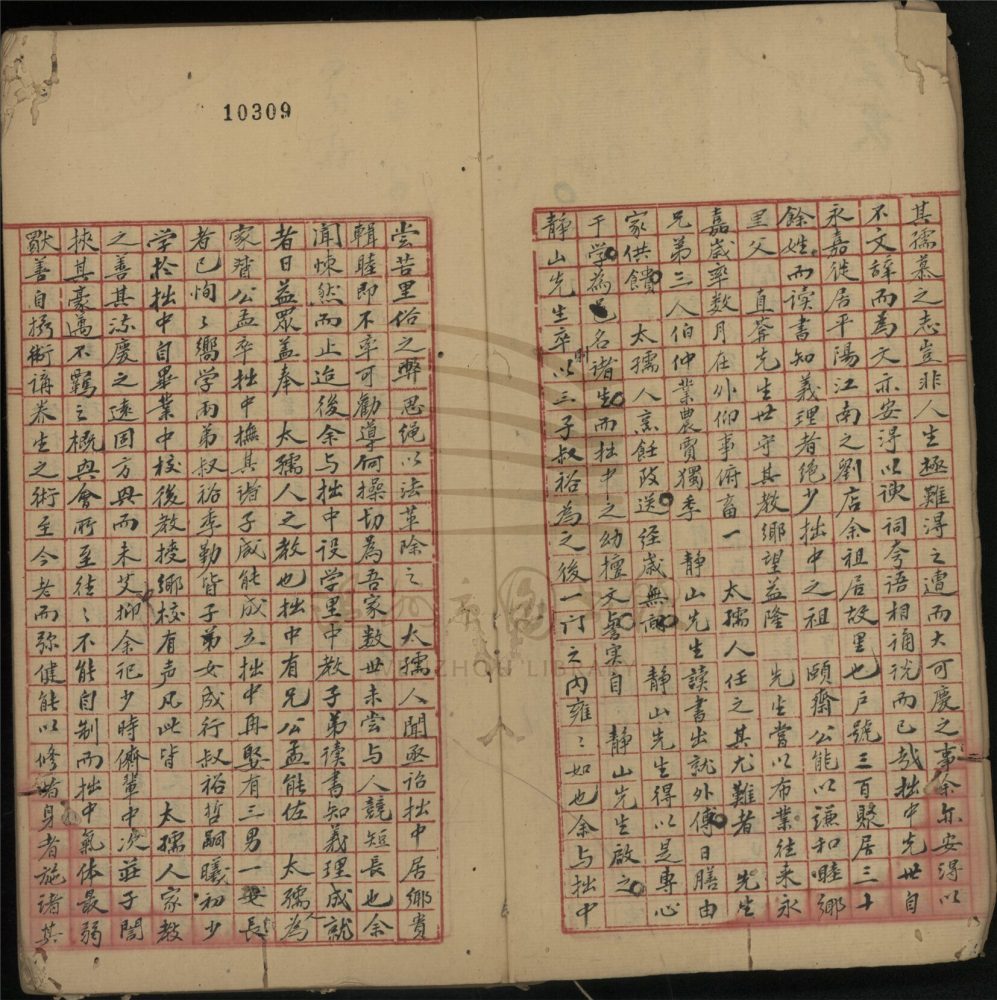 其孺慕之志豈非人生極難得之遭而大可慶之事余亦安得以
不文辞而為文亦安得以諛詞夸語相誦說而已哉拙中先世自
永嘉徙居平陽江南之劉店余祖居故里也戶號三百聚居三十
餘姓而读書知義理者绝少拙中之祖 頤齋公能以谦和睦鄉
里父 直菴先生世守其教鄉望益隆 先生嘗以布業往来永
嘉歲率数月在外仰事俯畜一 太孺人任之其尤難者 先生
兄弟三人伯仲業農賈獨季 靜山先生讀書出就外傅日膳由
家供饋 太孺人烹飪致送经歲無 靜山先生得以是專心
于学為邑名諸生而拙中之幼擅文譽实自 靜山先生啟之
靜山先生卒以三子叔裕為之後一门之内雍〻如也余与拙中
10309
尝苦里俗之弊思绳以法革除之 太孺人聞亟诒拙中居鄉貴
輯睦即不率可勸導何操切為吾家数世未尝与人競短長也余
聞悚然而止迨後余与拙中设学里中教子弟读書知義理成就
者日益眾盖奉 太孺人之教也拙中有兄公孟能佐 太孺人為
家督公孟卒拙中撫其诸子咸能成立拙中再娶有三男一女長
者已恂〻嚮学兩弟叔裕季勤皆子弟女成行叔裕哲嗣曦初少
学於拙中自畢業中校後教授鄉校有声凡此皆 太孺人家教
之善其流慶之遠固方興而未艾抑余记少時儕輩中 莊子誾
挾其豪邁不羈之概與會所至往〻不能自制而拙中氣体最弱
歛善自 衛講养生之術至今老而弥健能以修诸身者施诸其